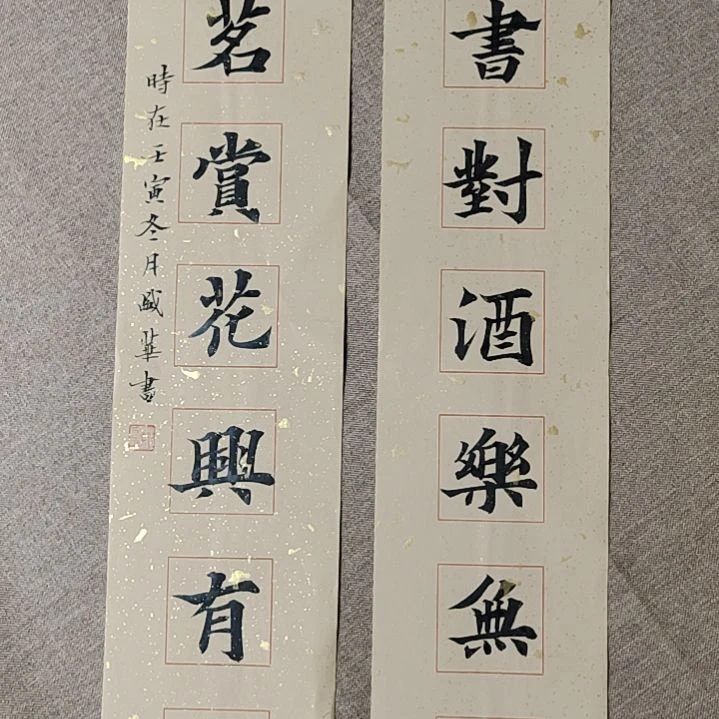 書對酒樂無
茗賞花興有
時在壬寅冬月盛華書